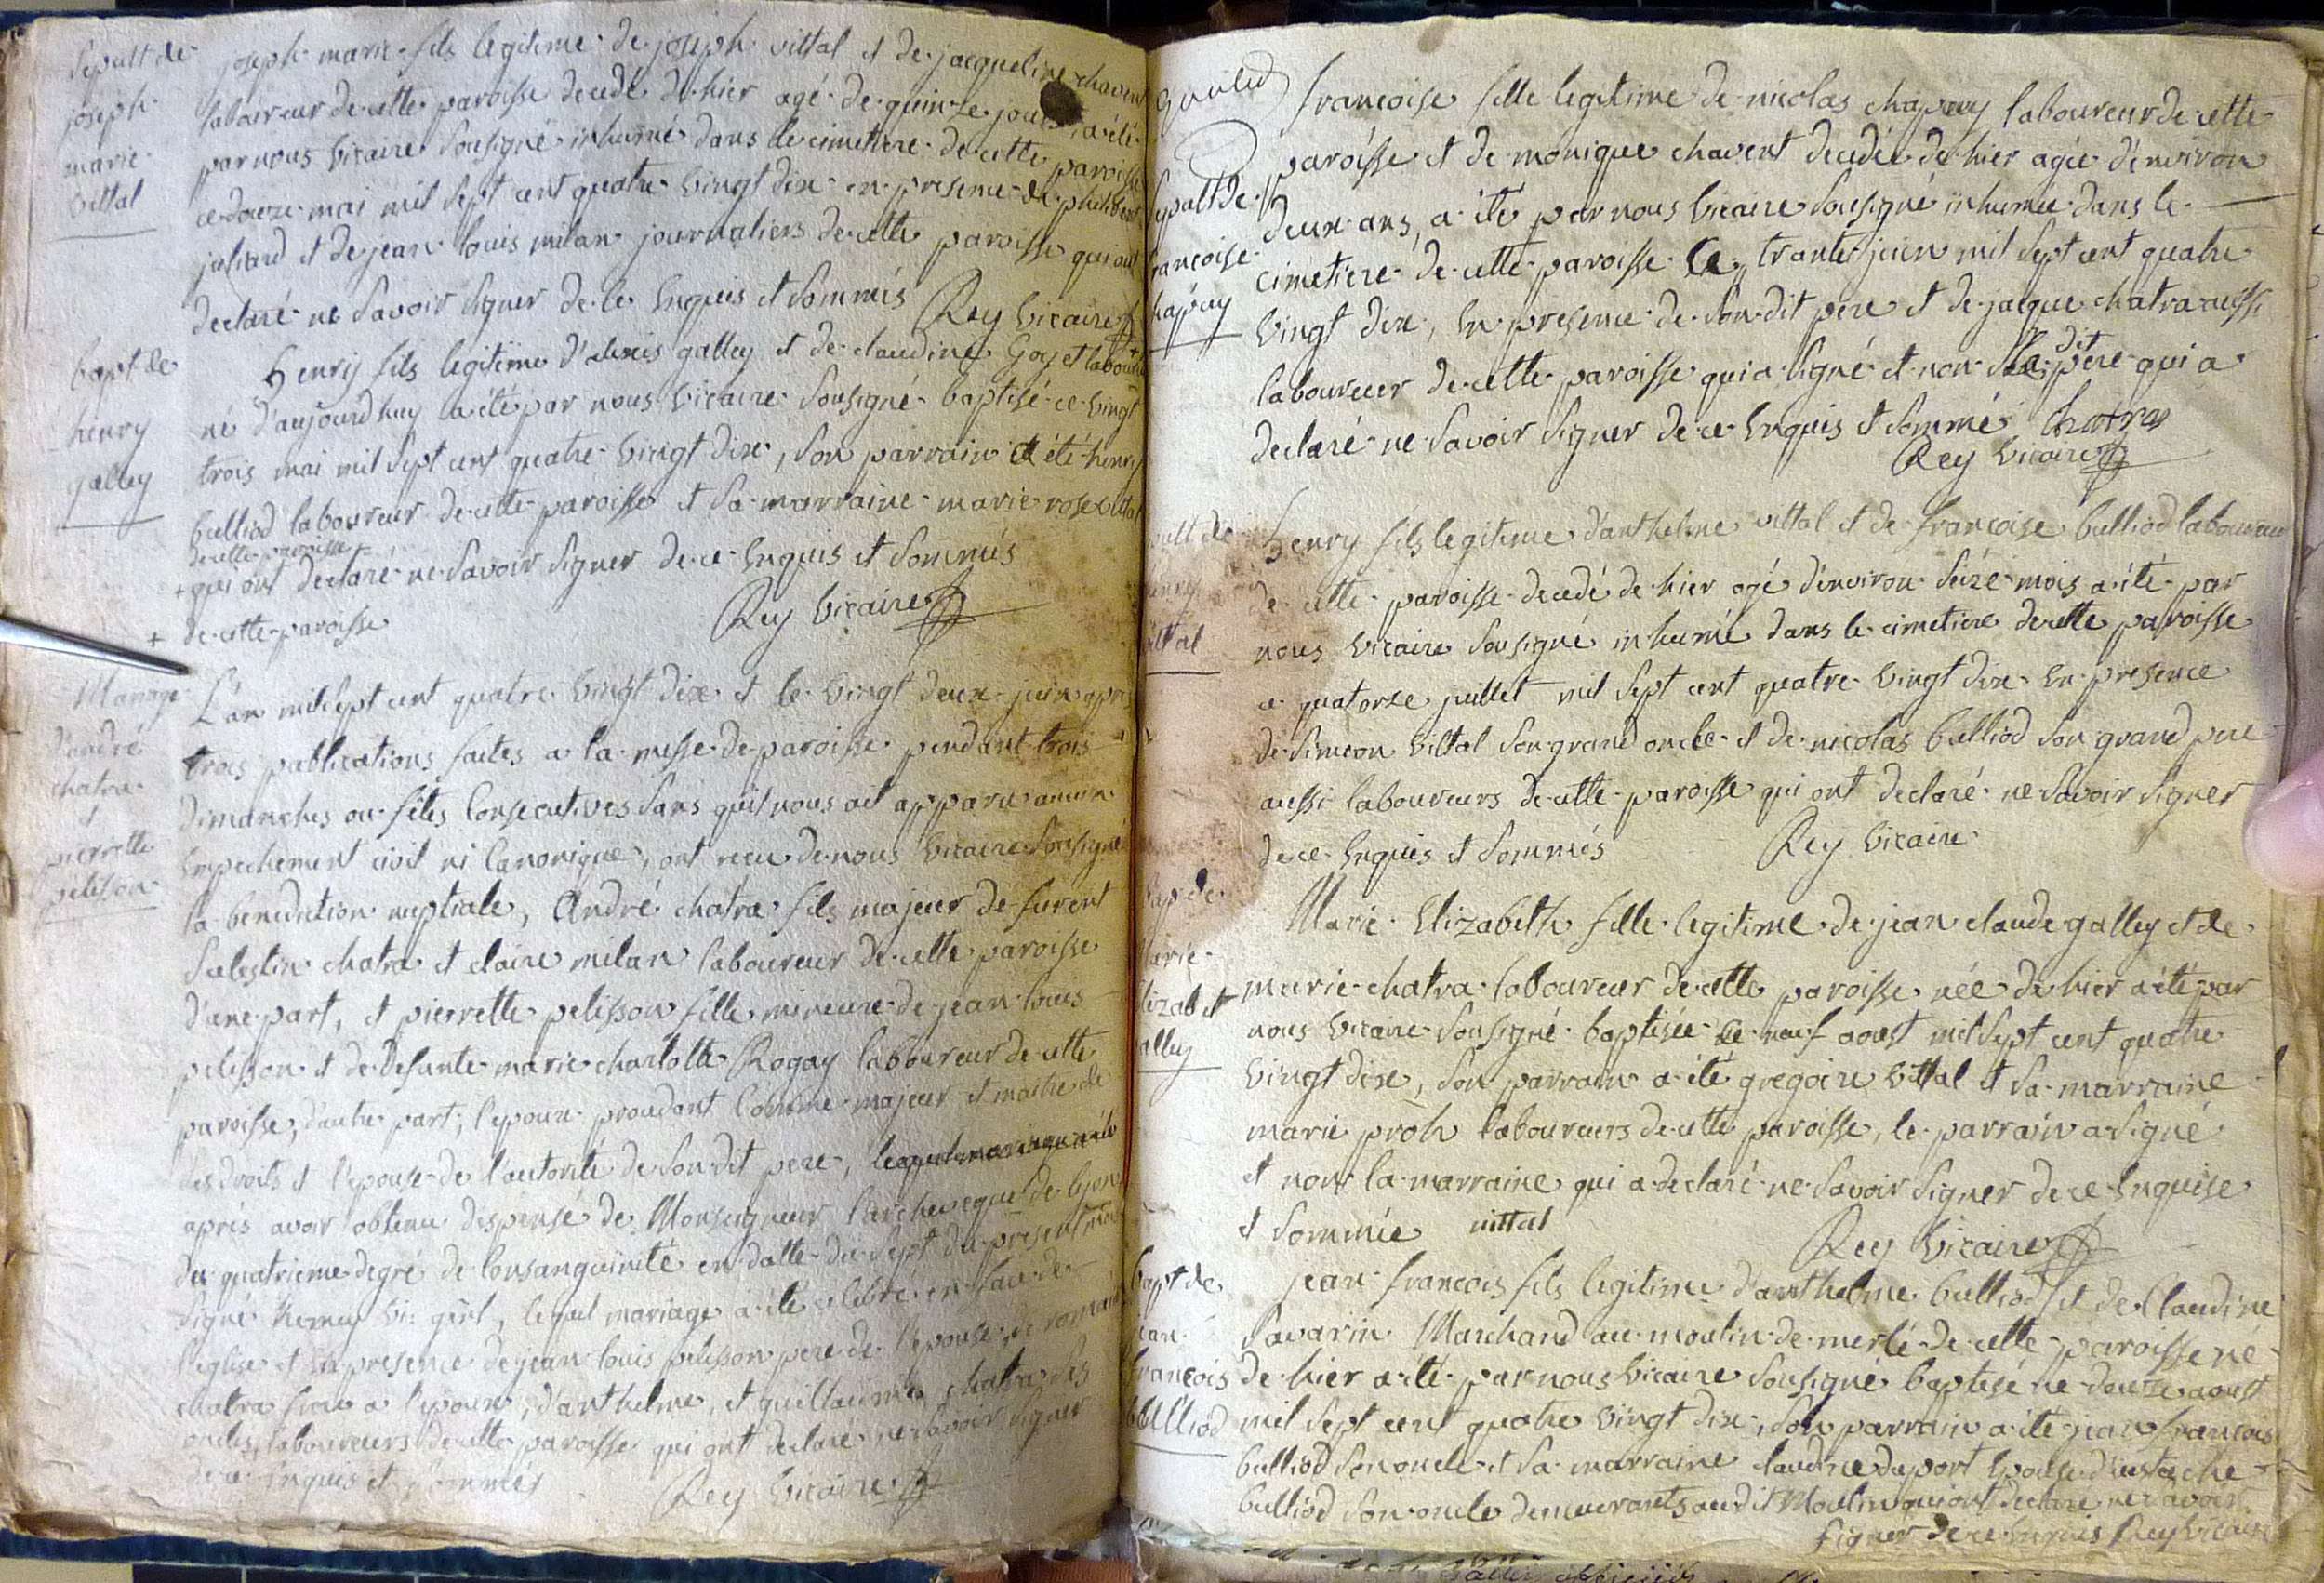 Sepult de
joseph
marie
vittal
joseph marie fils legitime de joseph vittal et de jacqueline chavent
laboureur de cette paroisse decedé de hier agé de quinze jours a été
par nous vicaire sousigné inhumé dans le cimetiere de cette paroisse
ce douze mai mil sept cent quatre vingt dix en presence de philibert
juliard et de jean louis milan journaliers de cette paroisse qui ont
declaré ne savoir signer de ce enquis et sommés Rey vicaire
bapt de
henry
galley
henry fils legitime d'alexis galley et de claudine Goyet laboureur
né d'aujourdhuy a été par nous vicaire sousigné baptisé ce vingt
trois mai mil sept cent quatre vingt dix, son parrain a été henry
bulliod laboureur de cette paroisse et sa marraine marie rose vittal
de cette paroisse
+ qui ont declaré ne savoir signer de ce enquis et sommés
+ de cette paroisse Rey vicaire
Mariage
d'andré
chatra
et
pierrette
pelisson
L'an mil sept cent quatre vingt dix et le vingt deux juin apres
trois publications faites a la messe de paroisse pendant trois
dimanches ou fetes consecutives sans qu'il nous ait apparu aucun
empechement civil ni canonique, ont recu de nous vicaire sousigné
la benediction nuptiale, André chatra fils majeur de furent
Salestin chatra et claire milan laboureur de cette paroisse
d'une part, et pierrette pelisson fille mineure de jean louis
pelisson et de defunte marie charlotte Rogay laboureur de cette
paroisse, d'autre part; l'epoux procedant comme majeur et maitre de
ses droits et l'epouse de l'autorité de son dit pere, lequel mariage a été
aprés avoir obtenu dispense de Monseigneur l'archeveque de lyon
du quatrieme degré de consanguinité en datte du sept du present mois
signé vic gerl, lequel mariage a été celebré en face de
l'eglise et en presence de jean louis pelisson pere de l'epouse, de romain
chatra frere a l'epoux, d'anthelme, et guillaume chatra ses
oncles, laboureurs de cette paroisse qui ont declaré ne savoir signer
de ce enquis et sommés Rey vicaire
Sepult de
francoise
chapuy
francoise fille legitime de nicolas chapuy laboureur de cette
paroisse et de monique chavent decedée de hier agée d'environ
deux ans, a été par nous vicaire sousigné inhumée dans le
cimetiere de cette paroisse ce trante juin mil sept cent quatre
vingt dix, en presence de son dit pere et de jacque chatra aussi
laboureur de cette paroisse qui a signé et non le dit pere qui a
declaré ne savoir signer de ce enquis et sommé chatra
Rey vicaire
sepult de
henry
vittal
henry fils legitime d'anthelme vittal et de francoise bulliod laboureur
de cette paroisse decedé de hier agé d'environ seize mois a été par
nous vicaire sousigné inhumé dans le cimetiere de cette paroisse
ce quatorze juillet mil sept cent quatre vingt dix en presence
de simeon vittal son grand oncle et de nicolas bulliod son grand pere
aussi laboureurs de cette paroisse qui ont declaré ne savoir signer
de ce enquis et sommés Rey vicaire
bap de
marie
elizabet
galley
Marie Elizabeth fille legitime de jean claude galley et de
marie chatra laboureur de cette paroisse née de hier a été par
nous vicaire sousigné baptisée ce neuf aoust mil sept cent quatre
vingt dix, son parrain a été gregoire vittal et sa marraine
marie proh laboureurs de cette paroisse, le parrain a signé
et non la marraine qui a declaré ne savoir signer de ce enquise
et sommée vittal
Rey vicaire
bapt de
jean
francois
bulliod
jean francois fils legitime d'anthelme bulliod et de Claudine
Savarin Marchand au moulin de merlé de cette paroisse né
de hier a été par nous vicaire sousigné baptisé ce douze aoust
mil sept cent quatre vingt dix, son parrain a été jean francois
bulliod son oncle et sa marraine claudine duport epouse d'eustache
bulliod son oncle demeurants audit Moulin qui ont declaré ne savoir
signer de ce enquis Rey vicaire